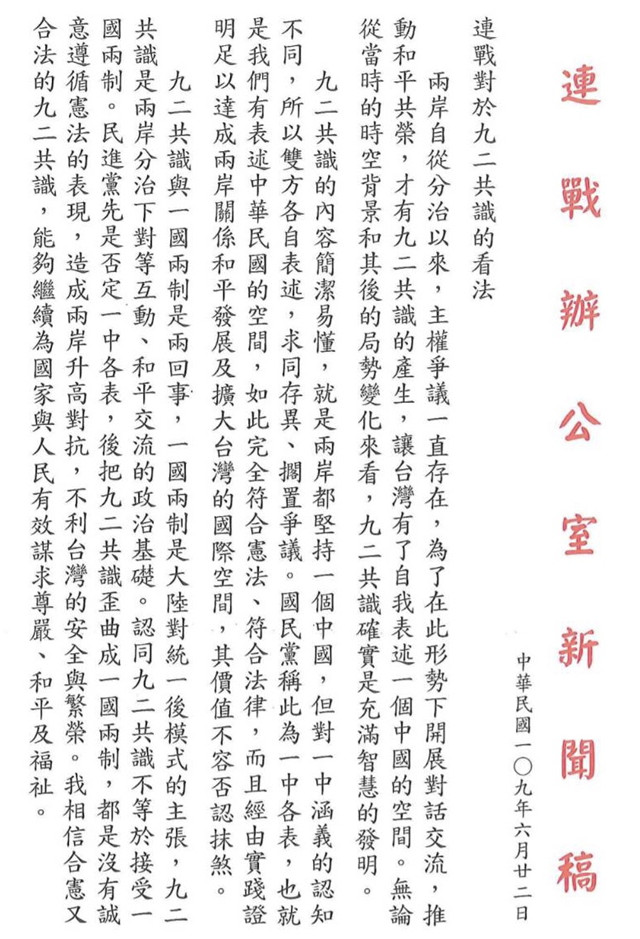 連戰辦公室新聞稿
中華民國一〇九年六月廿二日
連戰對於九二共識的看法
兩岸自從分治以來，主權爭議一直存在，為了在此形勢下開展對話交流，推
動和平共榮，才有九二共識的產生，讓台灣有了自我表述一個中國的空間。無論
從當時的時空背景和其後的局勢變化來看，九二共識確實是充滿智慧的發明。
九二共識的內容簡潔易懂，就是兩岸都堅持一個中國，但對一中涵義的認知
不同，所以雙方各自表述，求同存異、擱置爭議。國民黨稱此為一中各表，也就
是我們有表述中華民國的空間，如此完全符合憲法、符合法律，而且經由實踐證
明足以達成兩岸關係和平發展及擴大台灣的國際空間，其價值不容否認抹煞。
九二共識與一國兩制是兩回事，一國兩制是大陸對統一後模式的主張，九二
共識是兩岸分治下對等互動、和平交流的政治基礎。認同九二共識不等於接受一
國兩制。民進黨先是否定一中各表，後把九二共識歪曲成一國兩制，都是沒有誠
意遵循憲法的表現，造成兩岸升高對抗，不利台灣的安全與繁榮。我相信合憲又
合法的九二共識，能夠繼續為國家與人民有效謀求尊嚴、和平及福祉。